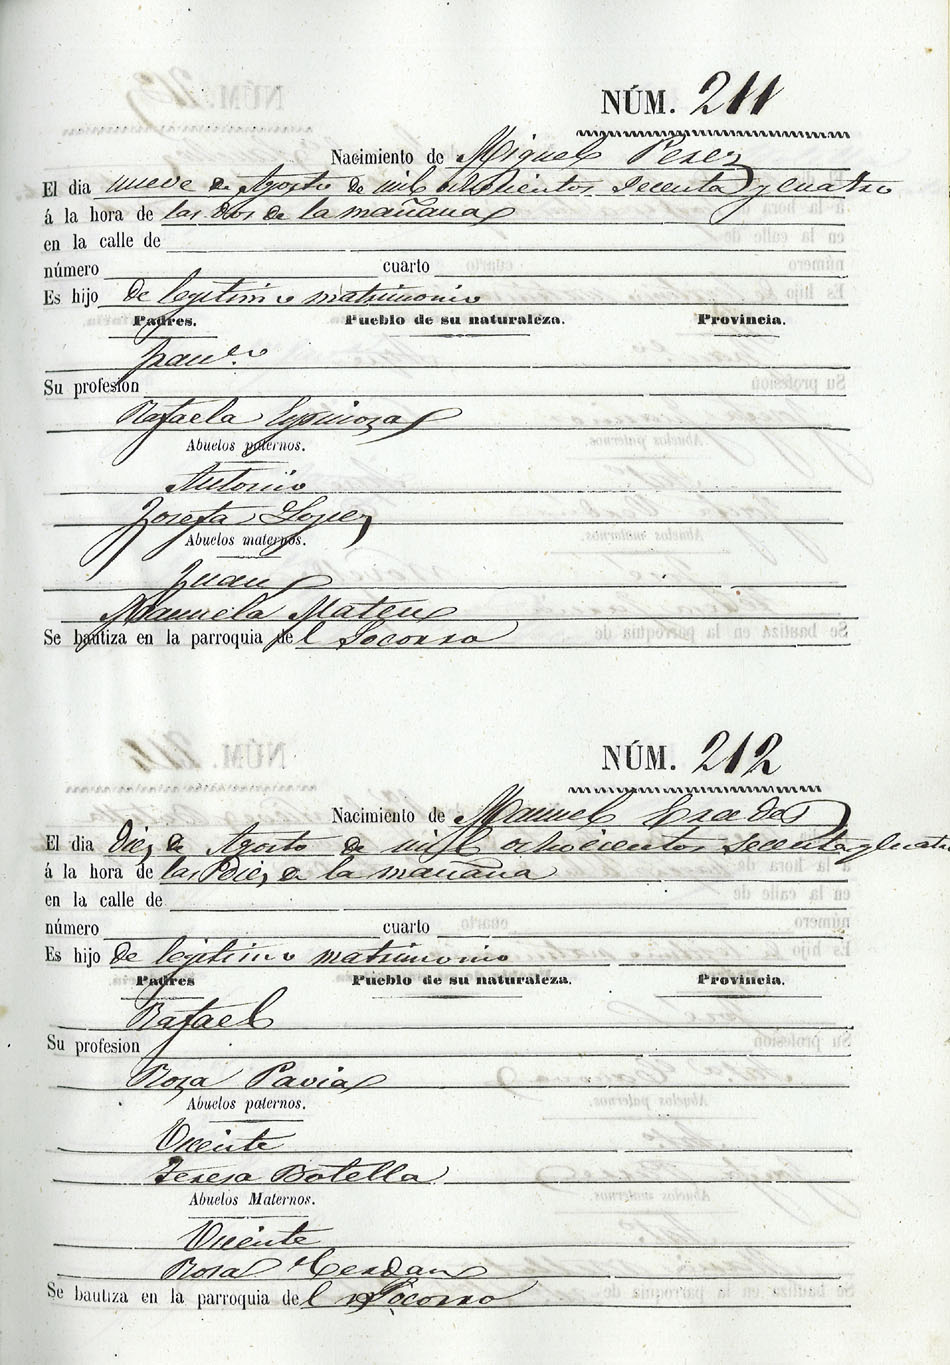 NÚM. 211
Nacimiento de Miguel Perez
El dia nueve de Agosto de mil ochocientos secenta y cuatro
á la hora de las dos de la mañana
en la calle de
número cuarto
Es hijo de legitimo matrimonio
Padres. Pueblo de su naturaleza. Provincia.
Franco
Su profesion
Rafaela Espinoza
Abuelos paternos.
Antonio
Josefa Lopez
Abuelos maternos.
Juan
Manuela Mateu
Se bautiza en la parroquia del Socorro
NÚM. 212
Nacimiento de Manuel
El dia Diez de Agosto de mil ochocientos secenta y cuatro
á la hora de las Diez de la mañana
en la calle de
número cuarto
Es hijo de legitimo matrimonio
Padres Pueblo de su naturaleza. Provincia.
Rafael
Su profesion
Roza Pavia
Abuelos paternos.
Vicente
Teresa Botella
Abuelos Maternos.
Vicente
Rosa Cerdan
Se bautiza en la parroquia del Socorro